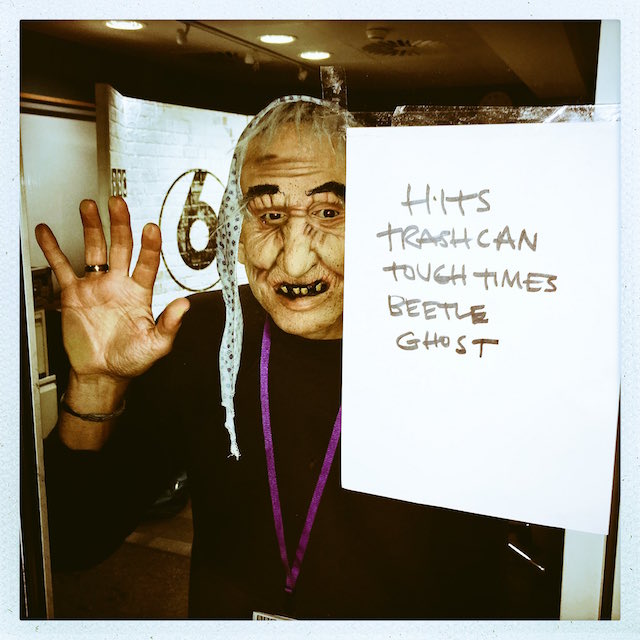 6
H·ITS
TRASHCAN
TOUGH TIMES
BEETLE
GHOST